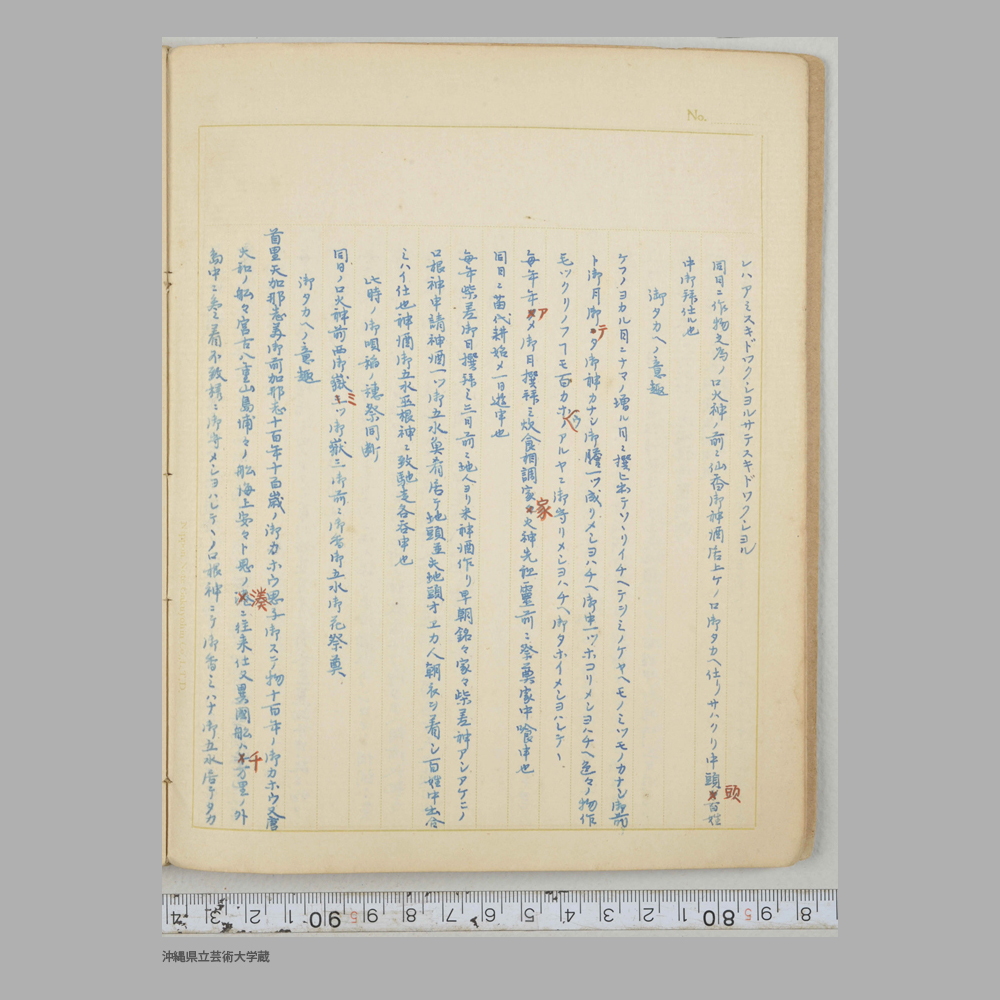 No.
レハアミスキドワクシヨルサテスキドワクシヨル
同日ニ作物之為ノロ火神ノ前ニ仙香御神酒居上ケノロ御タカヘ仕リサハクリ中頭頭百姓
中御拜仕ル也
御タカヘノ意趣
ケフノヨカル日ニナマノ増ル日ニ撰ヒ出テソヽリイチヘテツミノケヤヘモノミツモノカナシ御前
ト御月御テタ御神カナシ御膳一ツ盛リメシヨハチヘ御中一ツホコリメシヨハチヘ色々ノ物作
モツクリノフーモ百カホウアルヤニ御守リメシヨハチヘ御タホイメシヨハレテヽ
毎年年アメ御日撰拜ミ炊食相調家家火神先祖霊前ニ祭奠家中喰申也
同日ニ苗代耕始メ一日遊申也
毎年柴差御日撰拜ミ三日前ニ地人ヨリ米神酒作リ早朝銘々家々柴差神アシアケニノ
ロ根神申請神酒一ツ御五水魚肴居テ地頭並夫地頭オエカ人朝衣ヲ着シ百姓中出合
ミハイ仕也神酒御五水巫根神ニ致馳走各吞申也
此時ノ御唄稲ノ穂祭同断
同日ノロ火神前西御嶽ミツ御嶽三御前ニ御香御五水御花祭奠
御タカヘノ意趣
首里天加那志美御前加那志十百年十百歳ノ御カホウ思子御ステ物十百年ノ御カホウ又唐
大和ノ船々宮古八重山島浦々ノ船海上安々ト思ノ湊ニ往来仕又異國船ハ千万里ノ外
島中ニ参着不致様ニ御守メシヨハレテヽノロ根神ニテ御香ミハナ御五水居テタカ
4 3 2 1 90 9 8 7 6 5 4 3 2 1 80 9 8
沖縄県立芸術大学蔵